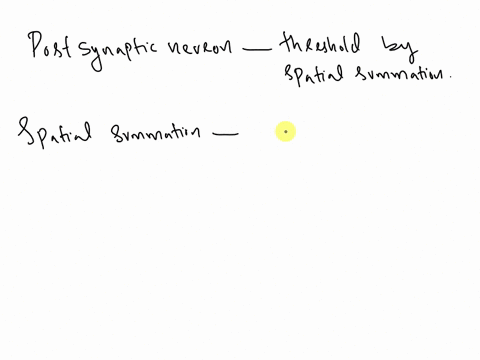 Post synaptic neuron — threshold by
spatial summation.
Spatial summation —